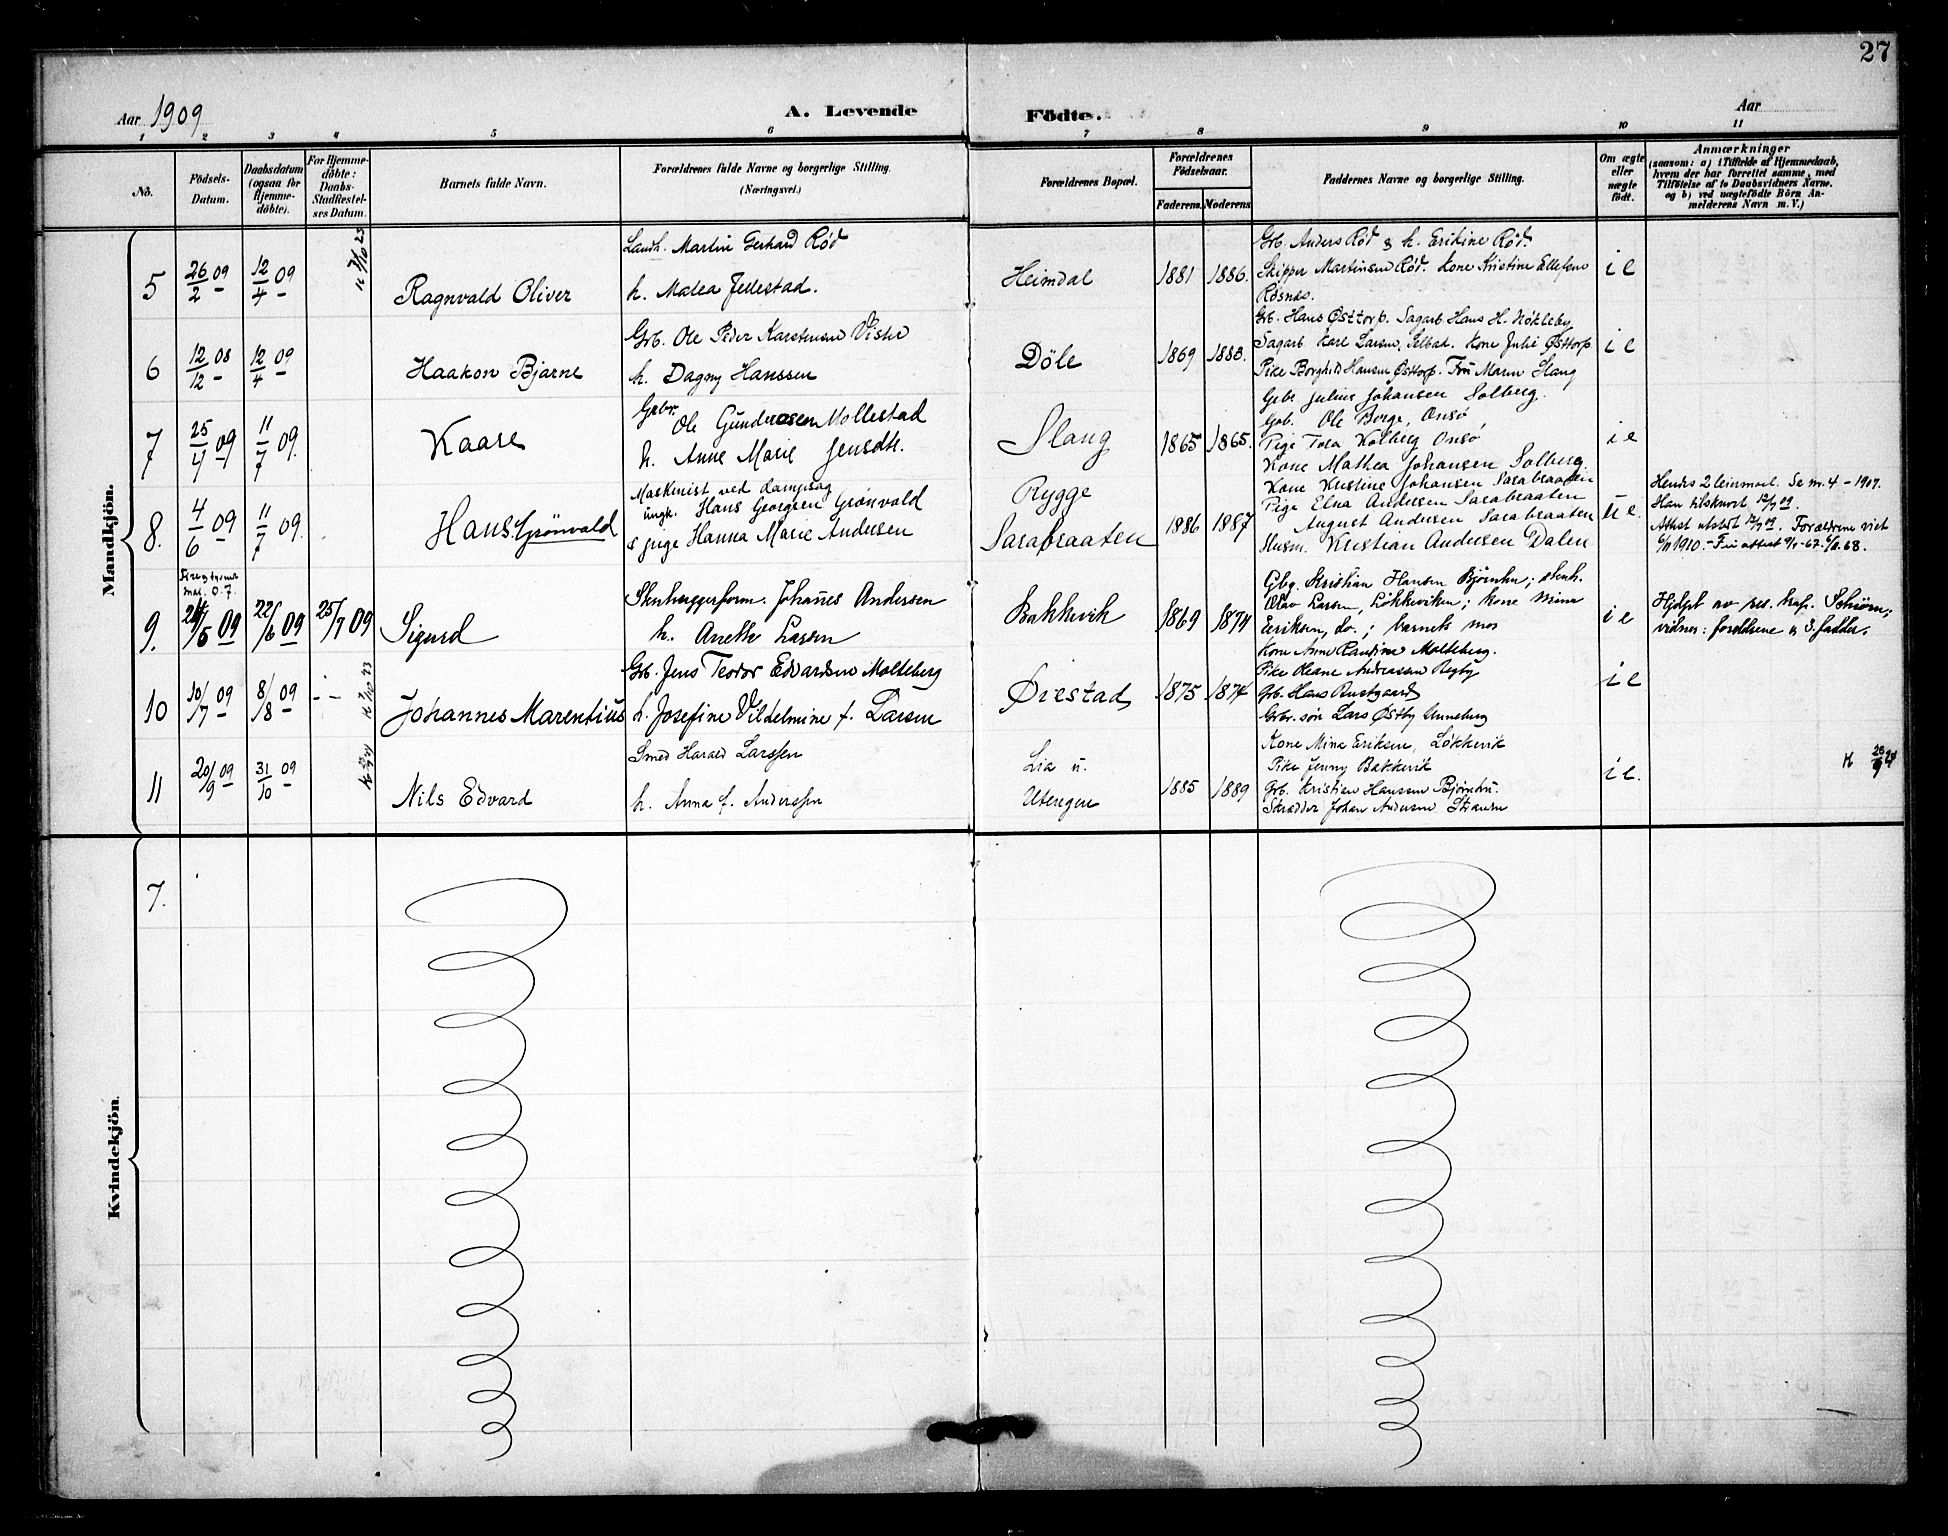 27
Aar 1909
A. Levende Födte.
Aar
1 2 3 4 5 6 7 8 9 10 11
Nö.
Födsels-Datum.
Daabsdatum (ogsaa for Hjemme-döbte).
For Hjemme-döbte: Daabs-Stadfæstel-ses Datum.
Barnets fulde Navn.
Forældrenes fulde Navne og borgerlige Stilling.
(Næringsvei.)
Forældrenes Bopæl.
Forældrenes Födselsaar.
Faderens. Moderens.
Faddernes Navne og borgerlige Stilling.
Om ægte eller uægte födt.
Anmærkninger
(saasom: a) i Tilfælde af Hjemmedaab,
hvem der har forrettet samme, med
Tilföielse af to Daabsvidners Navne.
og b) ved uægtefödte Börn An-
melderens Navn m. V.)
Mandkjön.
5
26/2 09
12/4 09
Ragnvald Oliver
Landh. Martin Gerhard Rød
h. Malea Jellestad.
Heimdal
1881 1886.
Grb. Anders Rød & h. Erikine Rød.
Skipper Martinsen Rød. Kone Kristine Ellefsen
Røsnæs.
i e
6
12/12 08
12/4 09
Haakon Bjarne
Grb. Ole Peder Karstensen Vister
h. Dagny Hanssen
Döle
1869 1883.
Grb. Hans Østtorp. Sagarb Hans H. Nökleby
Sagarb Karl Larsen, Selbak. Kone Julie Østtorp
Pike Borghild Hansen Østtorp. Fru Maren Slang
i e
7
25/4 09
11/7 09.
Kaare
Grbr. Ole Gundersen Mollestad
h. Anne Marie Jensdtr.
Slang
1865 1865.
Grbr Julius Johansen Solberg.
Grb. Ole Borge, Onsö
Pige Tora Kolberg Onsö
Kone Mathea Johansen Solberg.
i e
8.
4/6 09
11/7 09.
Hans Grönvald
Maskinist ved dampsag
ungk. Hans Georgsen Grønvold
& pige Hanna Marie Andersen
Rygge
Sarabraaten
1886 1887
Kone Kristine Johansen Sarabraaten
Pige Elna Andersen Sarabraaten
August Andersen Sarabraaten
Husm. Kristian Andersen Dalen
u e.
Hendes 2 leiermaal. Se nr. 4 - 1907.
Han tilskrevet 12/7 09.
Attest utstedt 12/7 09. Forældrene viet
1910.
9.
/5 09
22/6 09
25/7 09
Sigurd
Stenhuggerform. Johannes Andersen
h. Anette Larsen
Bakkevik
1869 1874
Gbg. Kristian Hansen Björnhu; stenh.
Olav Larsen, Lökkeviken; kone Mina
Eriksen, do.; barnets mor
i e
Hjdöpt av res. kap. Schiörn;
vidner: forældrene & 3. fadder.
10
10/7 09
8/8 09
Johannes Marentius
Grb. Jens Teodor Edvardsen Molteberg
h. Josefine Vilhelmine f. Larsen
Örestad
1875 1874
Kone Anne Randine Molteberg.
Pike Oleane Andreassen Begby
Grb. Hans Rustgaard
Grbr. sön Lars Østby Unneberg
i e
11
20/9 09
31/10 09
Nils Edvard
Smed Harald Larssen
h. Anna f. Anderssen
Lia u.
Utengen
1885 1889
Kone Mina Eriksen, Løkkevik
Pike Jenny Bakkevik
Grb. Kristian Hanssen Björnhu.
Skrædder Johan Andersen
i e.
Kvindekjön.
7.